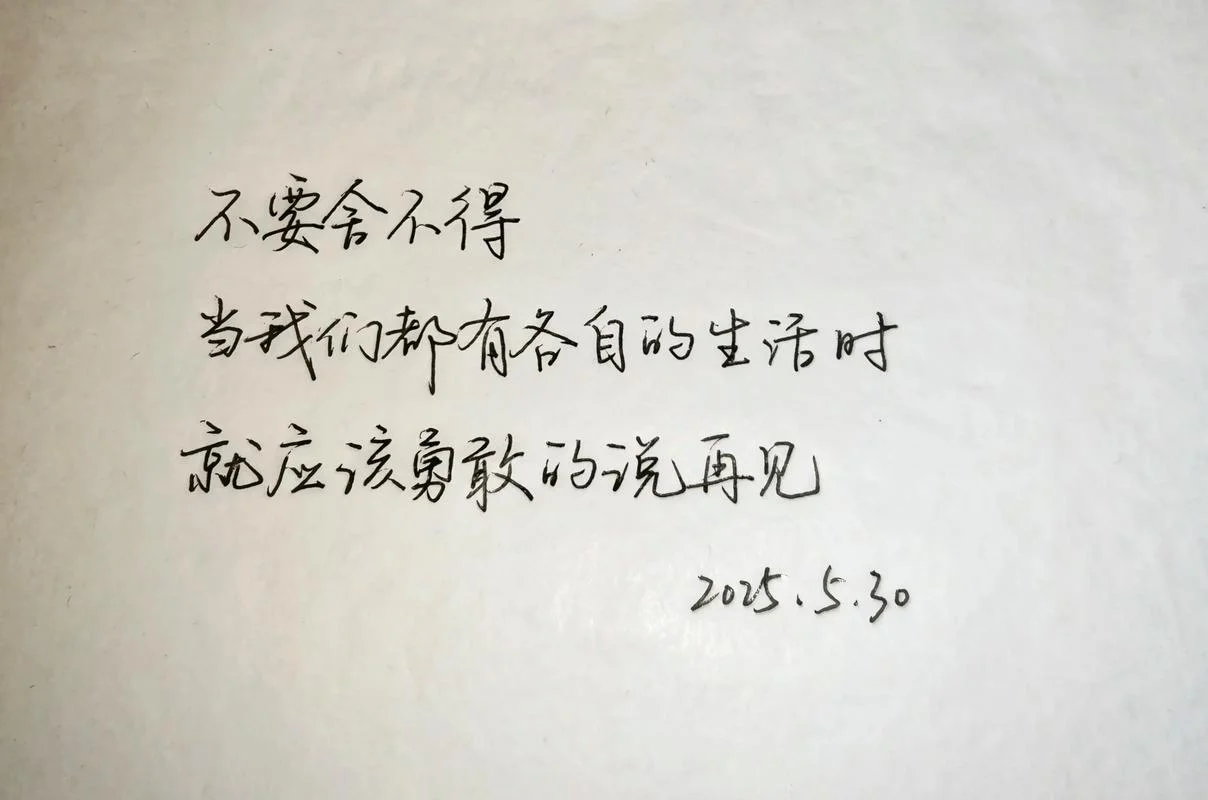 不要舍不得
当我们都有各自的生活时
就应该勇敢的说再见
2025.5.30